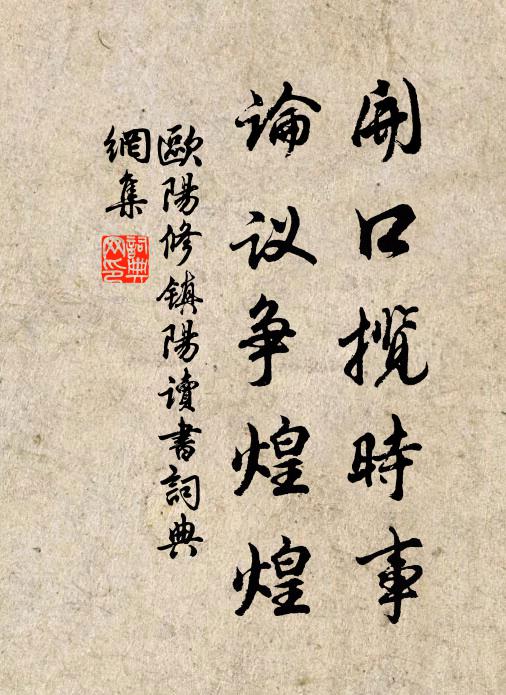 開口攬時事
論议争煌煌
歐陽修鎮陽讀書詞典
網集
詞典
网印